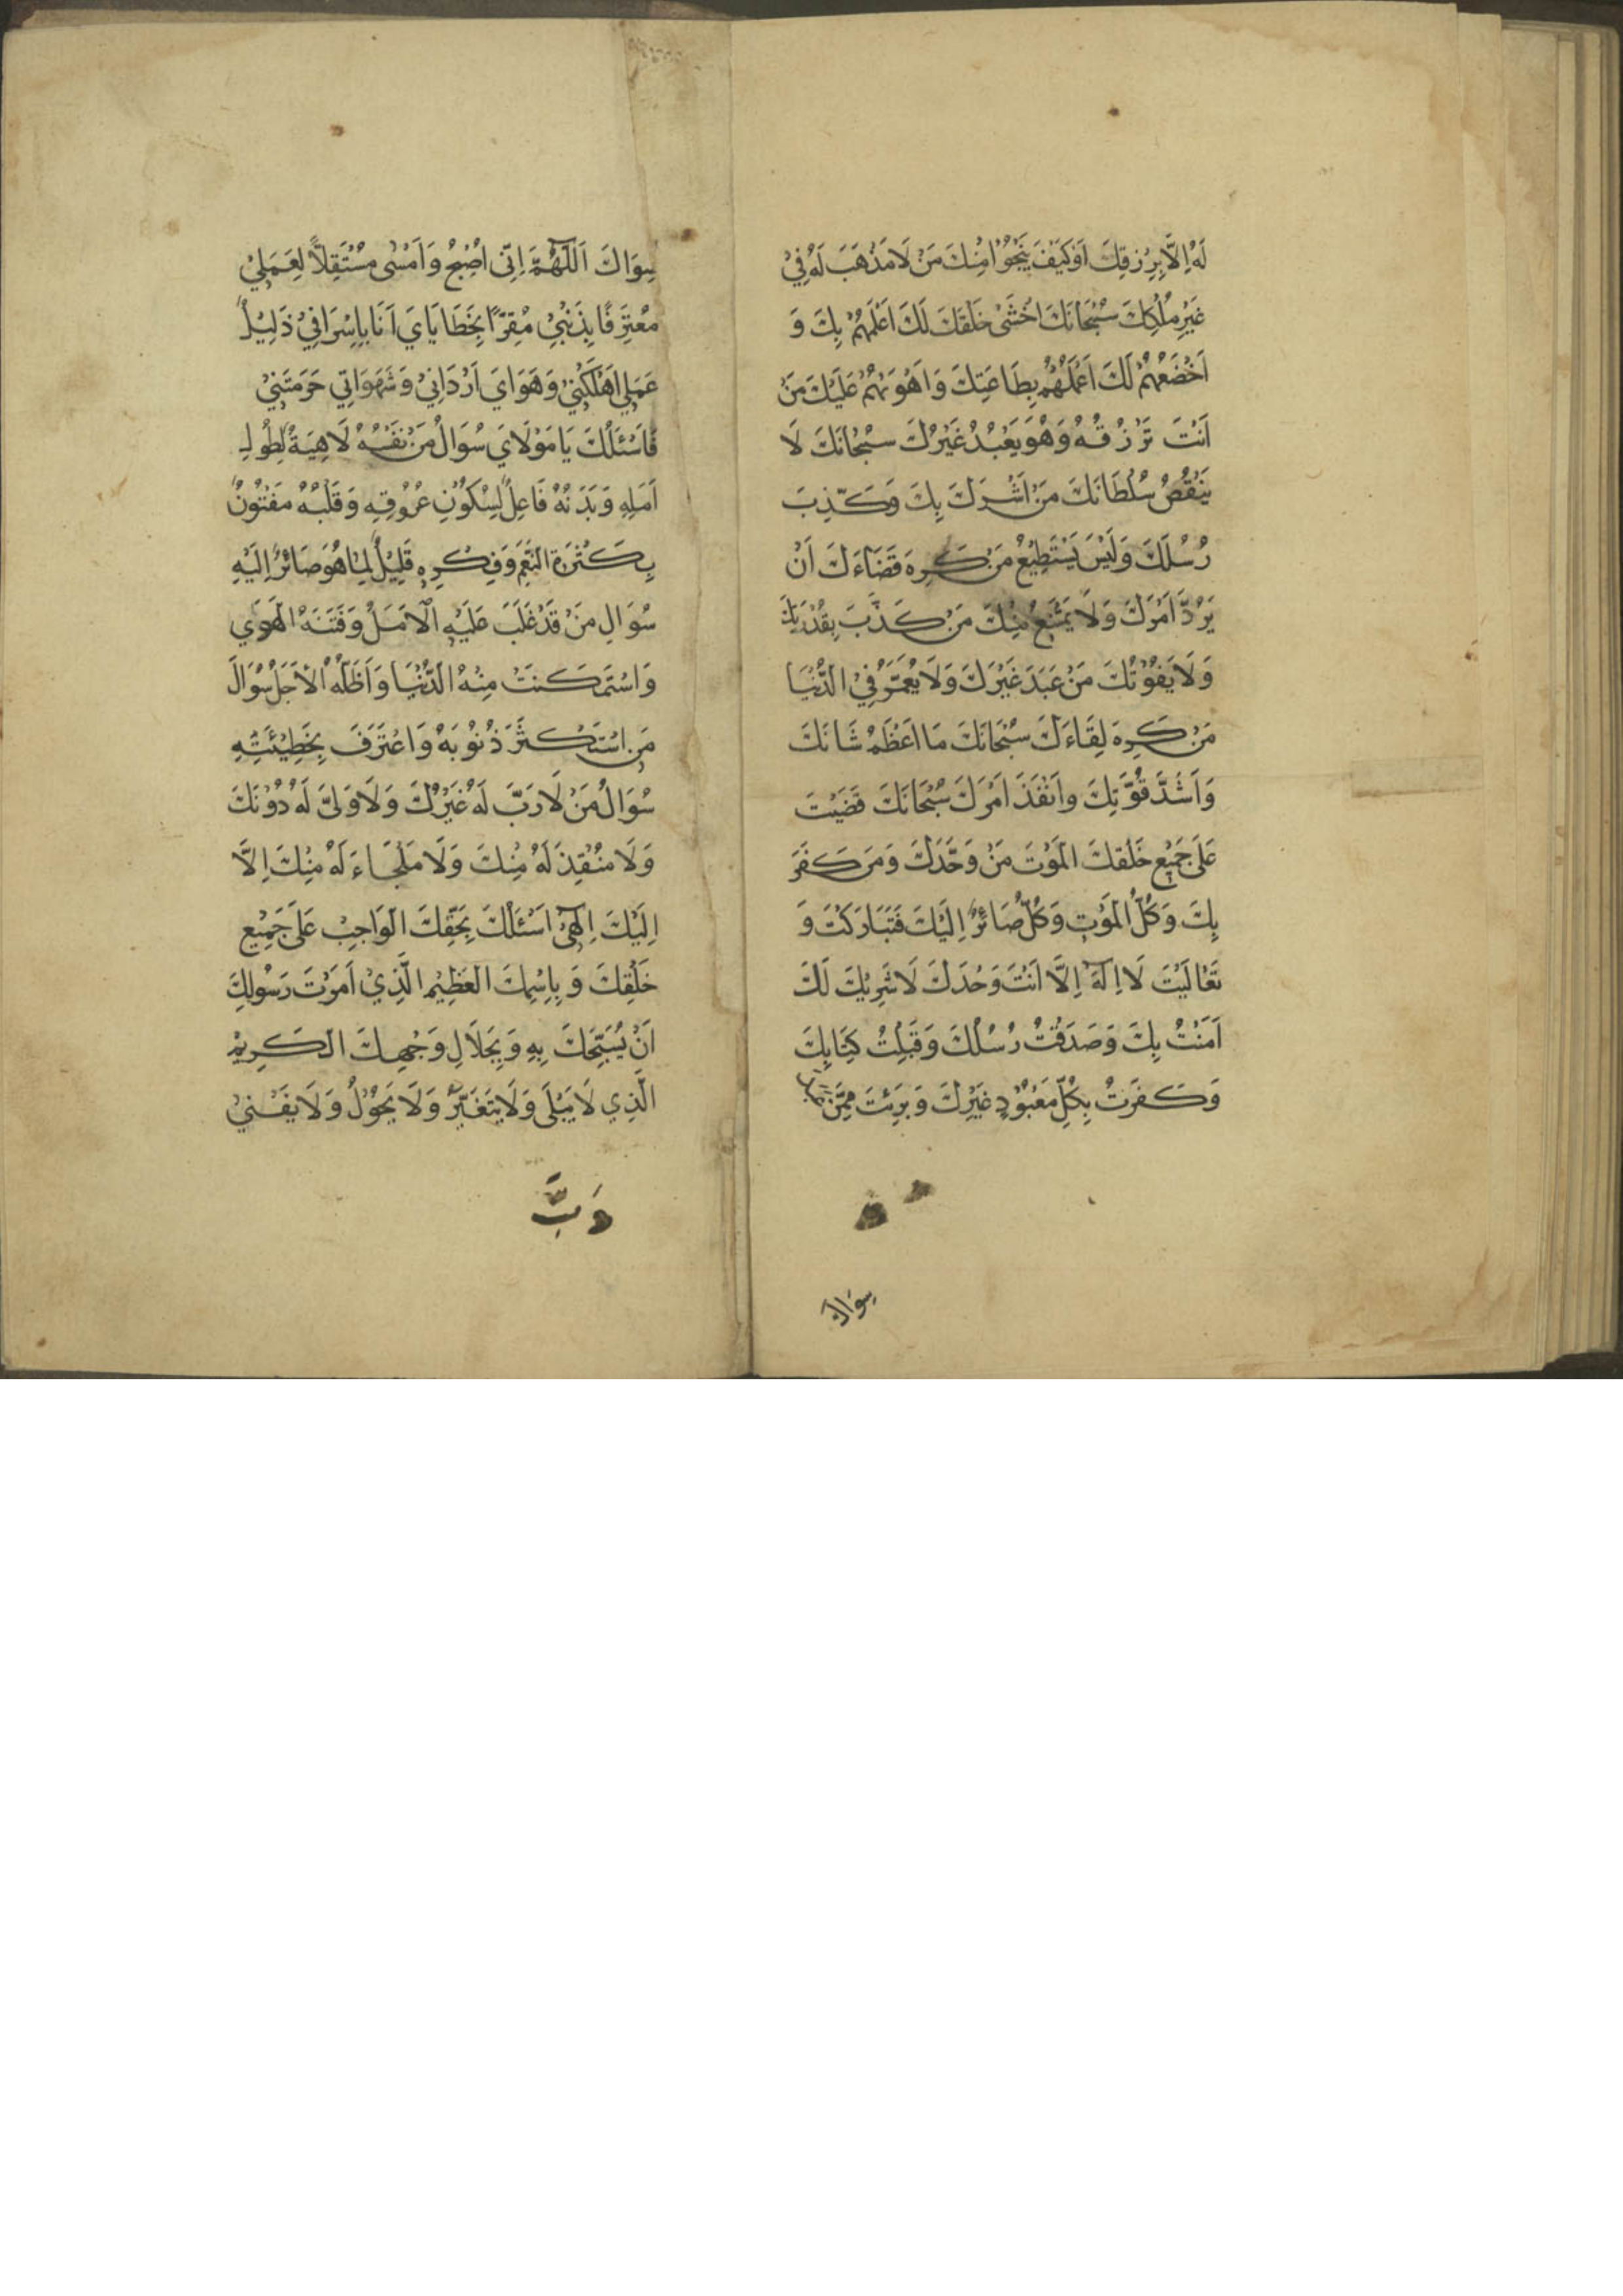 لَهُ اِلَّا بِرِزقِكَ اَوْ كَيْفَ يَنْجُوْا مِنْكَ مَنْ لَا مَذْهَبَ لَهُ فِيْ
غَيْرِ مُلْكِكَ سُبْحَانَكَ اَخْشٰى خَلْقِكَ لَكَ اَعْلَمُهُمْ بِكَ وَ
اَخْضَعُهُمْ لَكَ اَعْمَلُهُمْ بِطَاعَتِكَ وَاَهْوَنُهُمْ عَلَيْكَ مَنْ
اَنْتَ تَرْزُقُهُ وَهُوَ يَعْبُدُ غَيْرَكَ سُبْحَانَكَ لَا
يَنْقُصُ سُلْطَانَكَ مَنْ اَشْرَكَ بِكَ وَكَذَّبَ
رُسُلَكَ وَلَيْسَ يَسْتَطِيْعُ مَنْ كَرِهَ قَضَاءَكَ اَنْ
يَرُدَّ اَمْرَكَ وَلَا يَمْتَنِعُ مِنْكَ مَنْ كَذَّبَ بِقُدْرَتِكَ
وَلَا يَفُوْتُكَ مَنْ عَبَدَ غَيْرَكَ وَلَا يُعَمَّرُ فِي الدُّنْيَا
مَنْ كَرِهَ لِقَاءَكَ سُبْحَانَكَ مَا اَعْظَمَ شَانَكَ
وَاَشَدَّ قُوَّتِكَ واَنْفَذَ اَمْرَكَ سُبْحَانَكَ قَضَيْتَ
عَلٰى جَمِيْعِ خَلْقِكَ الْمَوْتَ مَنْ وَحَّدَكَ وَمَنْ كَفَرَ
بِكَ وَكُلُّ الْمَوْتِ وَكُلٌّ صَائِرٌ اِلَيْكَ فَتَبَارَكْتَ وَ
تَعَالَيْتَ لَا اِلٰهَ اِلَّا اَنْتَ وَحْدَكَ لَا شَرِيْكَ لَكَ
اٰمَنْتُ بِكَ وَصَدَقْتُ رُسُلَكَ وَقَبِلْتُ كِتَابِكَ
وَكَفَرْتُ بِكُلِّ مَعْبُوْدٍ غَيْرِكَ وَبَرِئْتَ مِمَّنْ
سِوَاكَ
سِوَاكَ اَللّٰهُمَّ اِنِّى اُصْبِحُ وَاَمْسٰى مُسْتَقِلًّا لِعَمَلِيْ
مُعْتَرِفًا بِذَنْبِيْ مُقِرًّا بِخَطَايَايَ اَنَا بِاِسْرَافِيْ ذَلِيْلٌ
عَمَلِي اَهْلَكَنِيْ وَهَوَايَ اَرْدَانِيْ وَشَهَوَاتِي حَرَمَتْنِيْ
فَاَسْئَلُكَ يَا مَوْلَايَ سُوَالَ مَنْ نَفْسُهُ لَاهِيَةٌ لِطُوْلِ
اَمَلِهِ وَبَدَنُهُ غَافِلٌ لِسُكُوْنِ عُرُوْقِهِ وَقَلْبُهُ مَفْتُوْنٌ
بِكَثْرَةِ النِّعَمِ وَفِكْرِهِ قَلِيْلٌ لِمَا هُوَ صَائِرٌ اِلَيْهِ
سُوَالِ مَنْ قَدْ غَلَبَ عَلَيْهِ الْاَمَلُ وَفَتَنَهُ الْهَوٰي
وَاسْتَمْكَنَتْ مِنْهُ الدُّنْيَا وَاَظَلَّهُ الْاَجَلُ سُوَالَ
مَنِ اسْتَكْثَرَ ذُنُوْبَهُ وَاعْتَرَفَ بِخَطِيْئَتِهِ
سُوَالُ مَنْ لَا رَبَّ لَهُ غَيْرُكَ وَلَا وَلِيَّ لَهُ دُوْنَكَ
وَلَا مُنْقِذَ لَهُ مِنْكَ وَلَا مَلْجَاءَ لَهُ مِنْكَ اِلَّا
اِلَيْكَ اِلٰهِيْ اَسْئَلُكَ بِحَقِّكَ الْوَاجِبِ عَلٰى جَمِيْعِ
خَلْقِكَ وَبِاِسْمِكَ الْعَظِيْمِ الَّذِيْ اَمَرْتَ رَسُولِكَ
اَنْ يُسَبِّحَكَ بِهِ وَبِجَلَالِ وَجْهِكَ الْكَرِيْمِ
الَّذِي لَا يَبْلٰى وَلَا يَتَغَيَّرُ وَلَا يَحُوْلُ وَلَا يَفْنٰيْ